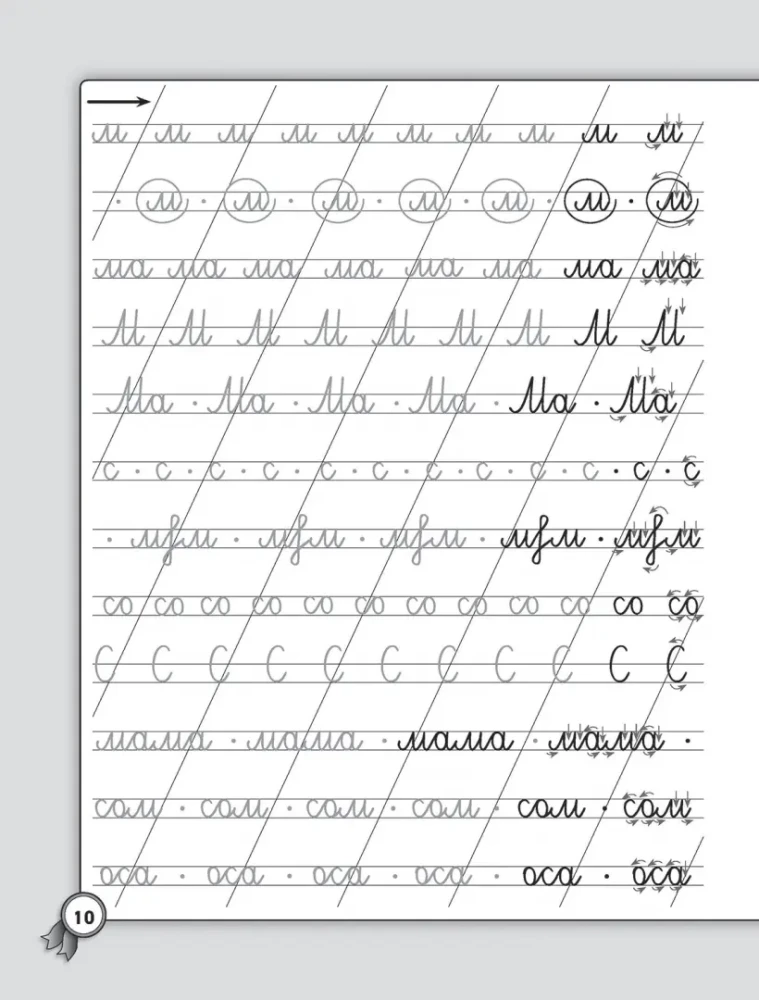 м м м м м м м м м м
· м · м · м · м · м · м · м
ма ма ма ма ма ма ма ма
М М М М М М М М М
Ма · Ма · Ма · Ма · Ма · Ма
с · с · с · с · с · с · с · с · с · с · с · с
со со со со со со со со со со со со
С С С С С С С С С С С
мама · мама · мама · мама ·
сом · сом · сом · сом · сом · сом
оса · оса · оса · оса · оса · оса
10